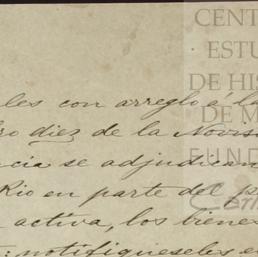 CENT
· ESTU
DE HIS
DE M
FUND
les con arreglo á la
ro diez de la Novis
cia se adjudican
Rio en parte del
activa, los biene
: notifiqueseles e